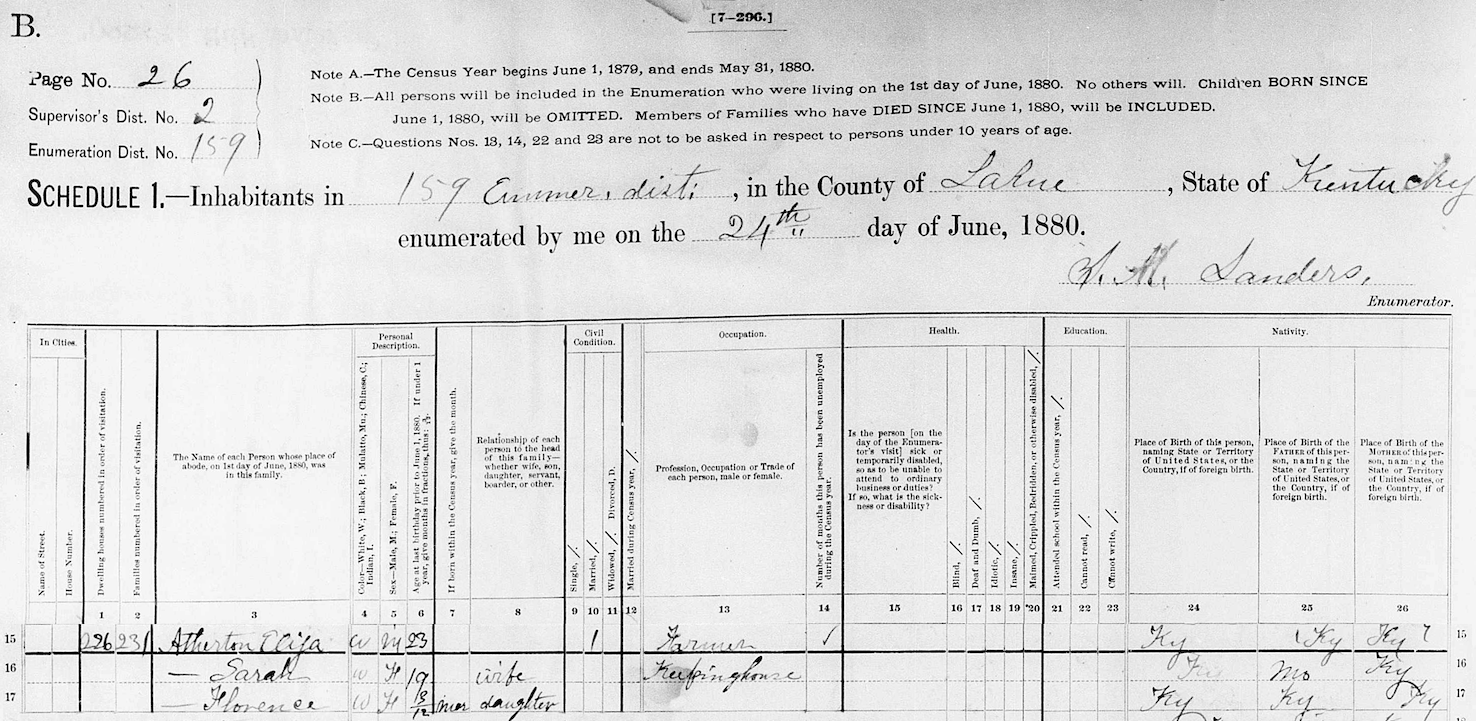 B.
[7–296.]
Page No. 26
Supervisor's Dist. No. 2
Enumeration Dist. No. 159
Note A.—The Census Year begins June 1, 1879, and ends May 31, 1880.
Note B.—All persons will be included in the Enumeration who were living on the 1st day of June, 1880. No others will. Children BORN SINCE
June 1, 1880, will be OMITTED. Members of Families who have DIED SINCE June 1, 1880, will be INCLUDED.
Note C.—Questions Nos. 13, 14, 22 and 23 are not to be asked in respect to persons under 10 years of age.
SCHEDULE 1.—Inhabitants in 159 Enumer. dist: , in the County of LaRue , State of Kentucky
enumerated by me on the 24th day of June, 1880.
M. Sanders,
Enumerator.
In Cities.
Name of Street.
House Number.
Dwelling houses numbered in order of visitation.
Families numbered in order of visitation.
The Name of each Person whose place of
abode, on 1st day of June, 1880, was
in this family.
Personal
Description.
Color—White, W.; Black, B.; Mulatto, Mu.; Chinese, C.;
Indian, I.
Sex—Male, M.; Female, F.
Age at last birthday prior to June 1, 1880. If under 1
year, give months in fractions, thus: 3/12.
If born within the Census year, give the month.
Relationship of each
person to the head
of this family—
whether wife, son,
daughter, servant,
boarder, or other.
Civil
Condition.
Single, /.
Married, /.
Widowed, /. Divorced, D.
Married during Census year, /.
Occupation.
Profession, Occupation or Trade of
each person, male or female.
Number of months this person has been unemployed
during the Census year.
Health.
Is the person [on the
day of the Enumera-
tor's visit] sick or
temporarily disabled,
so as to be unable to
attend to ordinary
business or duties?
If so, what is the sick-
ness or disability?
Blind, /.
Deaf and Dumb, /.
Idiotic, /.
Insane, /.
Maimed, Crippled, Bedridden, or otherwise disabled, /.
Education.
Attended school within the Census year, /.
Cannot read, /.
Cannot write, /.
Nativity.
Place of Birth of this person,
naming State or Territory
of United States, or the
Country, if of foreign birth.
Place of Birth of the
FATHER of this per-
son, naming the
State or Territory
of United States, or
the Country, if of
foreign birth.
Place of Birth of the
MOTHER of this per-
son, naming the
State or Territory
of United States, or
the Country, if of
foreign birth.
1 2 3 4 5 6 7 8 9 10 11 12 13 14 15 16 17 18 19 20 21 22 23 24 25 26
15 226 231 Atherton Elija W M 23 / Farmer Ky Ky Ky 15
16 — Sarah W F 19 wife Keepinghouse Mo Ky 16
17 — Florence W F daughter Ky Ky Ky 17